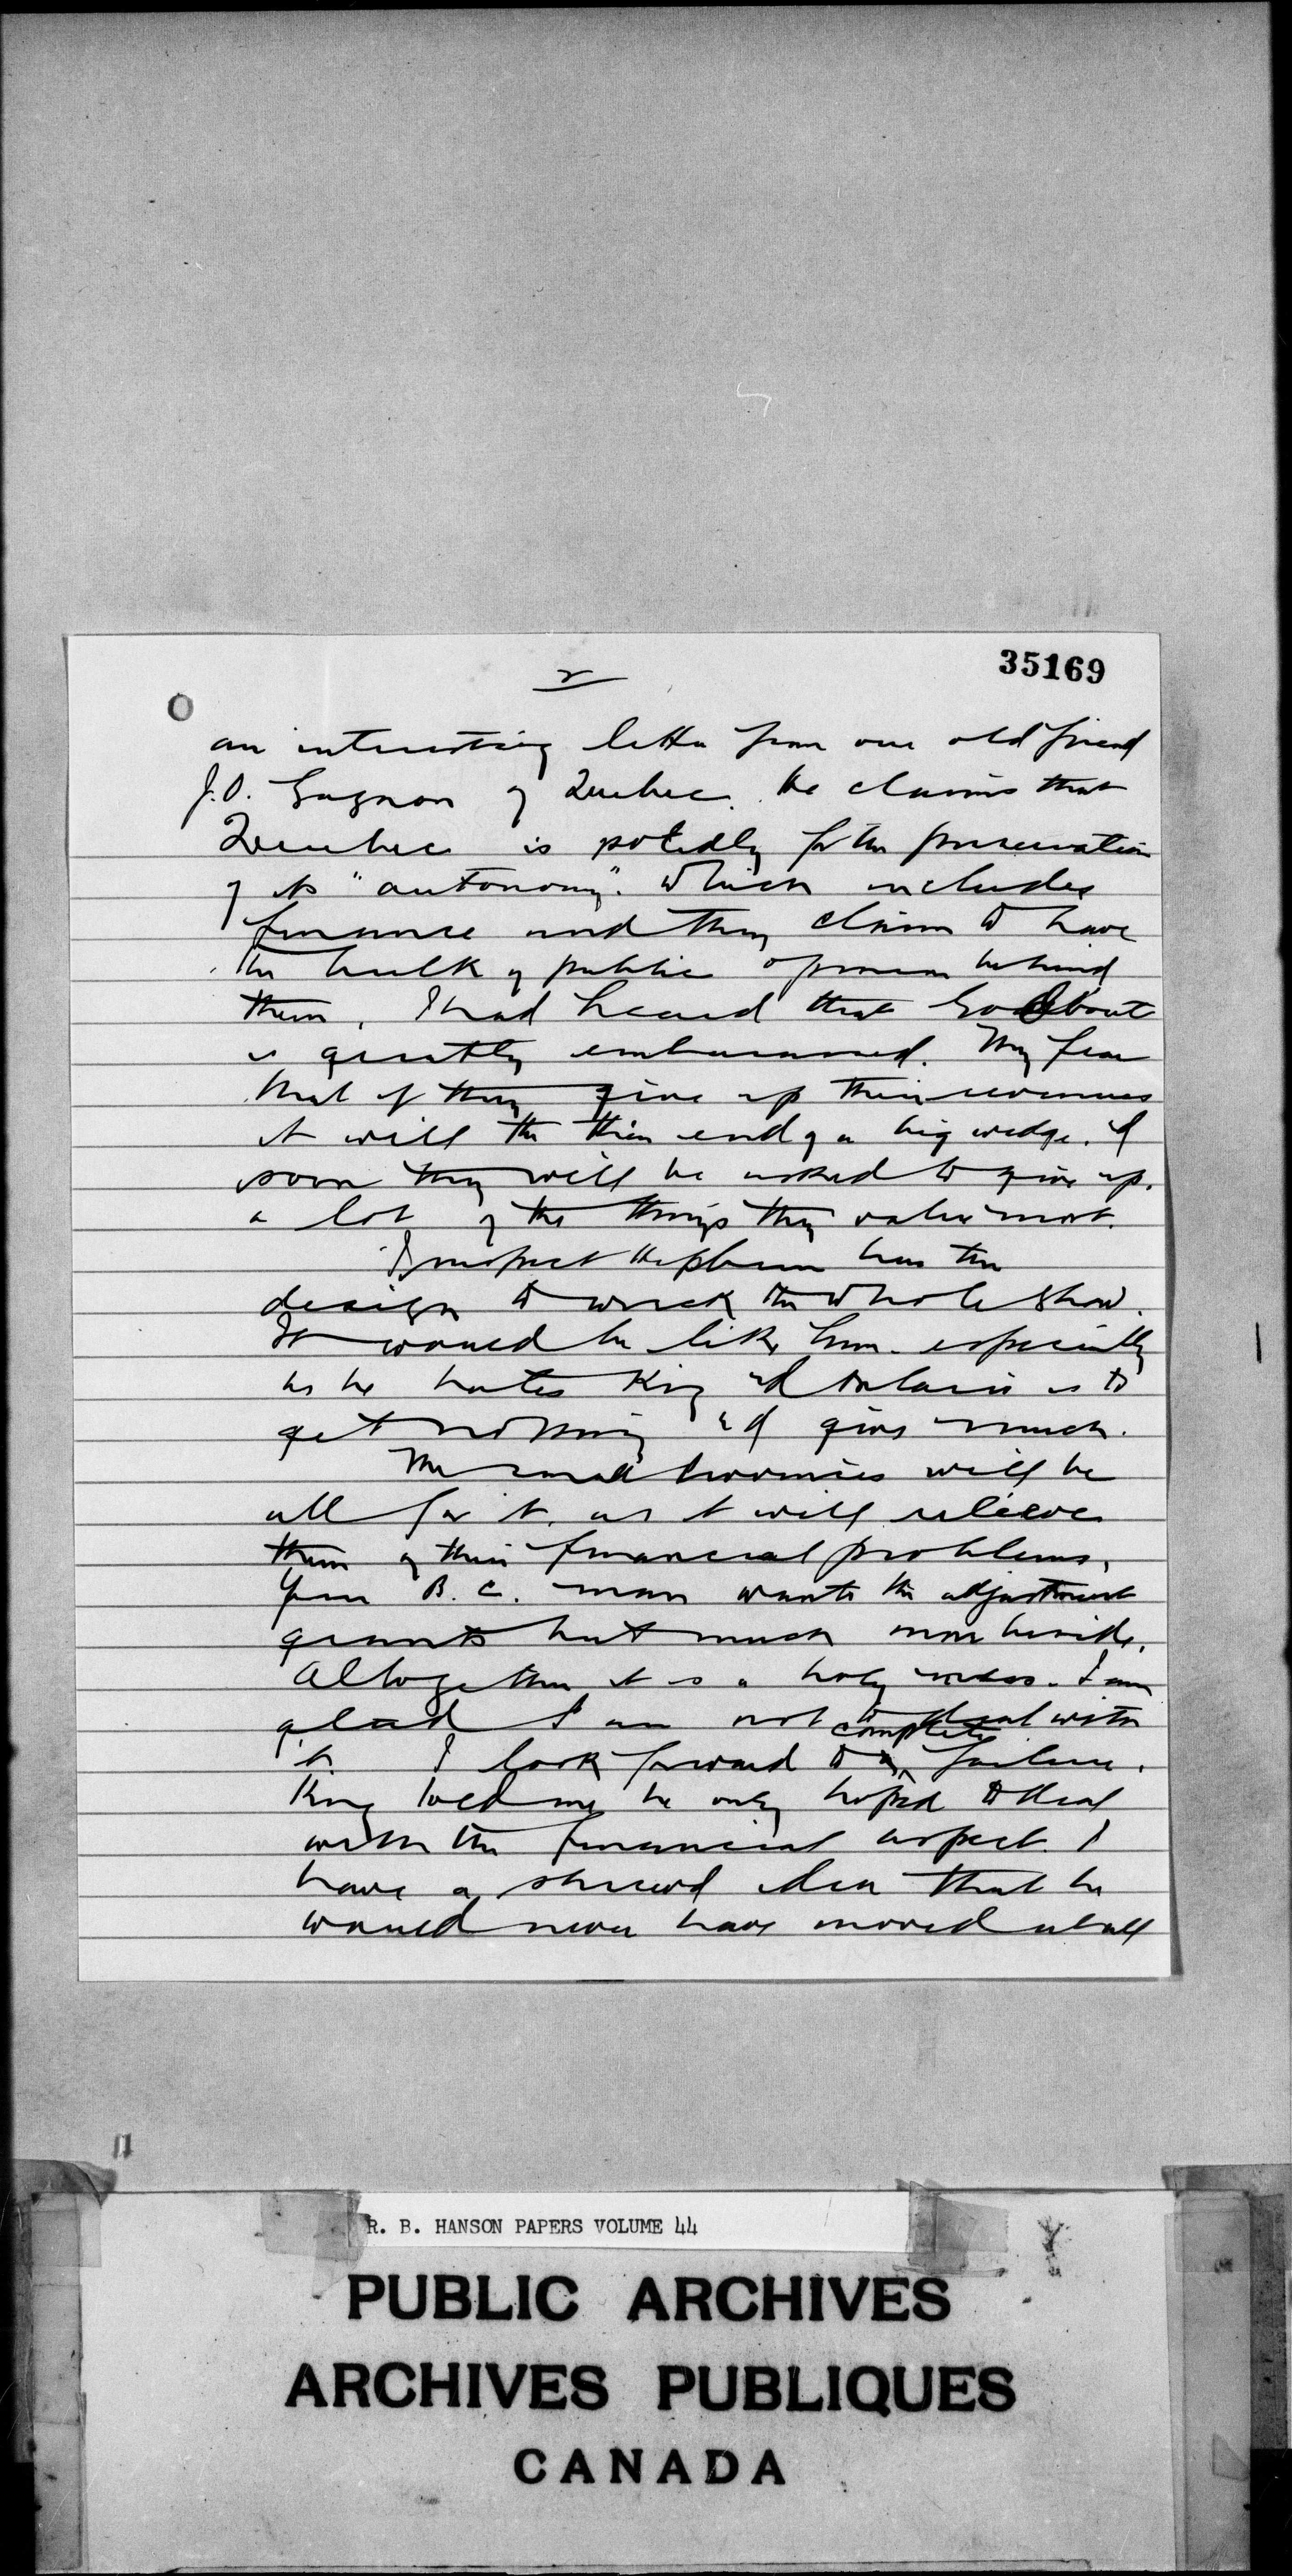 35169
2
an interesting letter from our old friend
J.O. Gagnon of Quebec. He claims that
Quebec is solidly for the preservation
of its "autonomy". Which includes
finance and they claim to have
the bulk of public opinion behind
them. I had heard that Godbout
is greatly embarrassed. They fear
that if they give up their revenues
it will the thin end of a big wedge. &
soon they will be asked to give up.
a lot of the things they value most.
I suspect Hepburn has the
design to wreck the whole show.
It would be like him. especially
as he hates King & Ontario is to
get nothing & give much.
The small provinces will be
all for it. as it will relieve
them of their financial problems.
Your B.C. man wants the adjustment
grants but much more beside.
Altogether it is a holy mess. I am
glad I am not to deal with
it. I look forward to complete failure.
King told me he only hoped to deal
with the financial aspect. I
have a shrewd idea that he
would never have moved at all
R. B. HANSON PAPERS VOLUME 44
PUBLIC ARCHIVES
ARCHIVES PUBLIQUES
CANADA